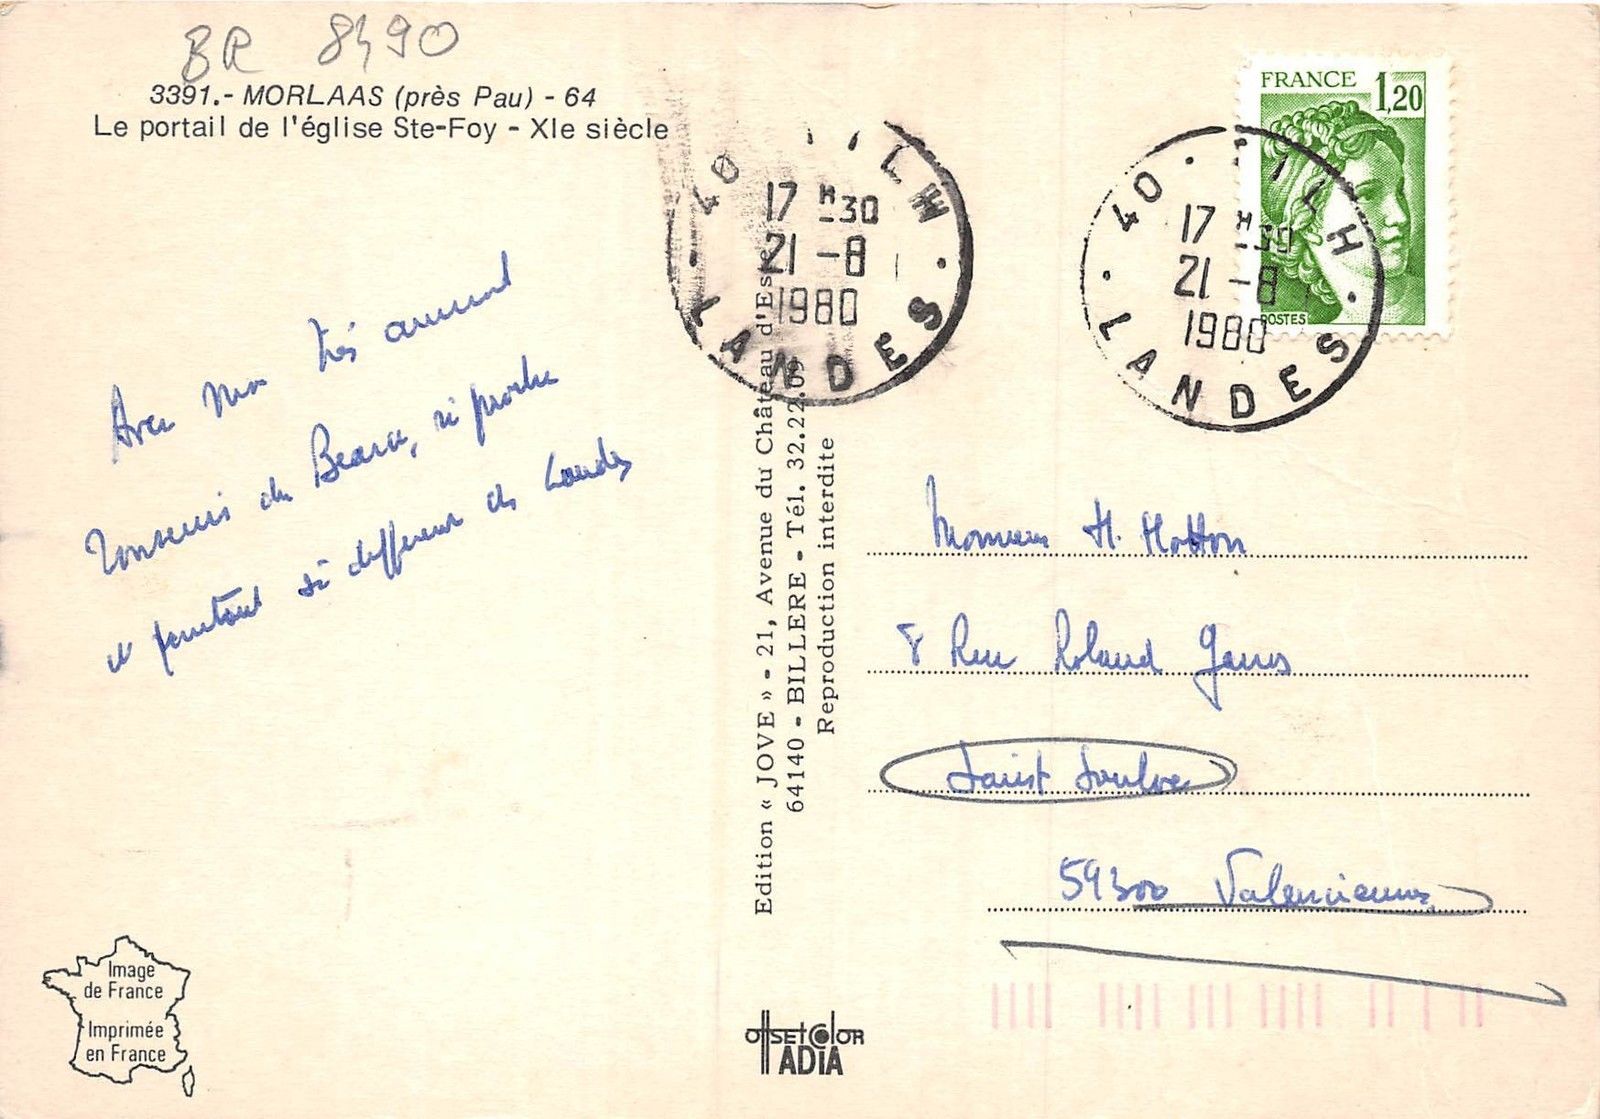 BR 8490
3391.- MORLAAS (près Pau) - 64
Le portail de l'église Ste-Foy - XIe siècle
Avec mon très amical
souvenir du Bearn, si proche
et pourtant si different des Landes
Edition « JOVE » - 21, Avenue du Château d'Este
64140 - BILLERE - Tél. 32.22.09
Reproduction interdite
40
17 H 30
21 - 8
1980
LANDES
FRANCE 1,20
POSTES
40
17 H 30
21 - 8
1980
LANDES
Monsieur H. Hotton
8 Rue Roland
Saint Saulve
59300 Valenciennes
Image
de France
Imprimée
en France
OffSET COlOR
ADIA